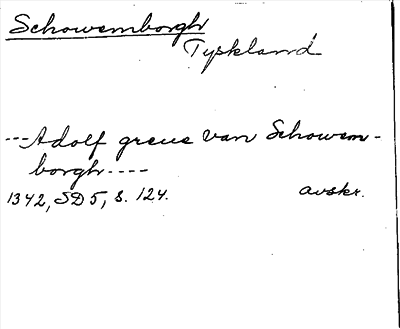 Schowemborgh
Tyskland
---Adolf greue van Schowem-
borgh----
1342, SD 5, s. 124. avskr.